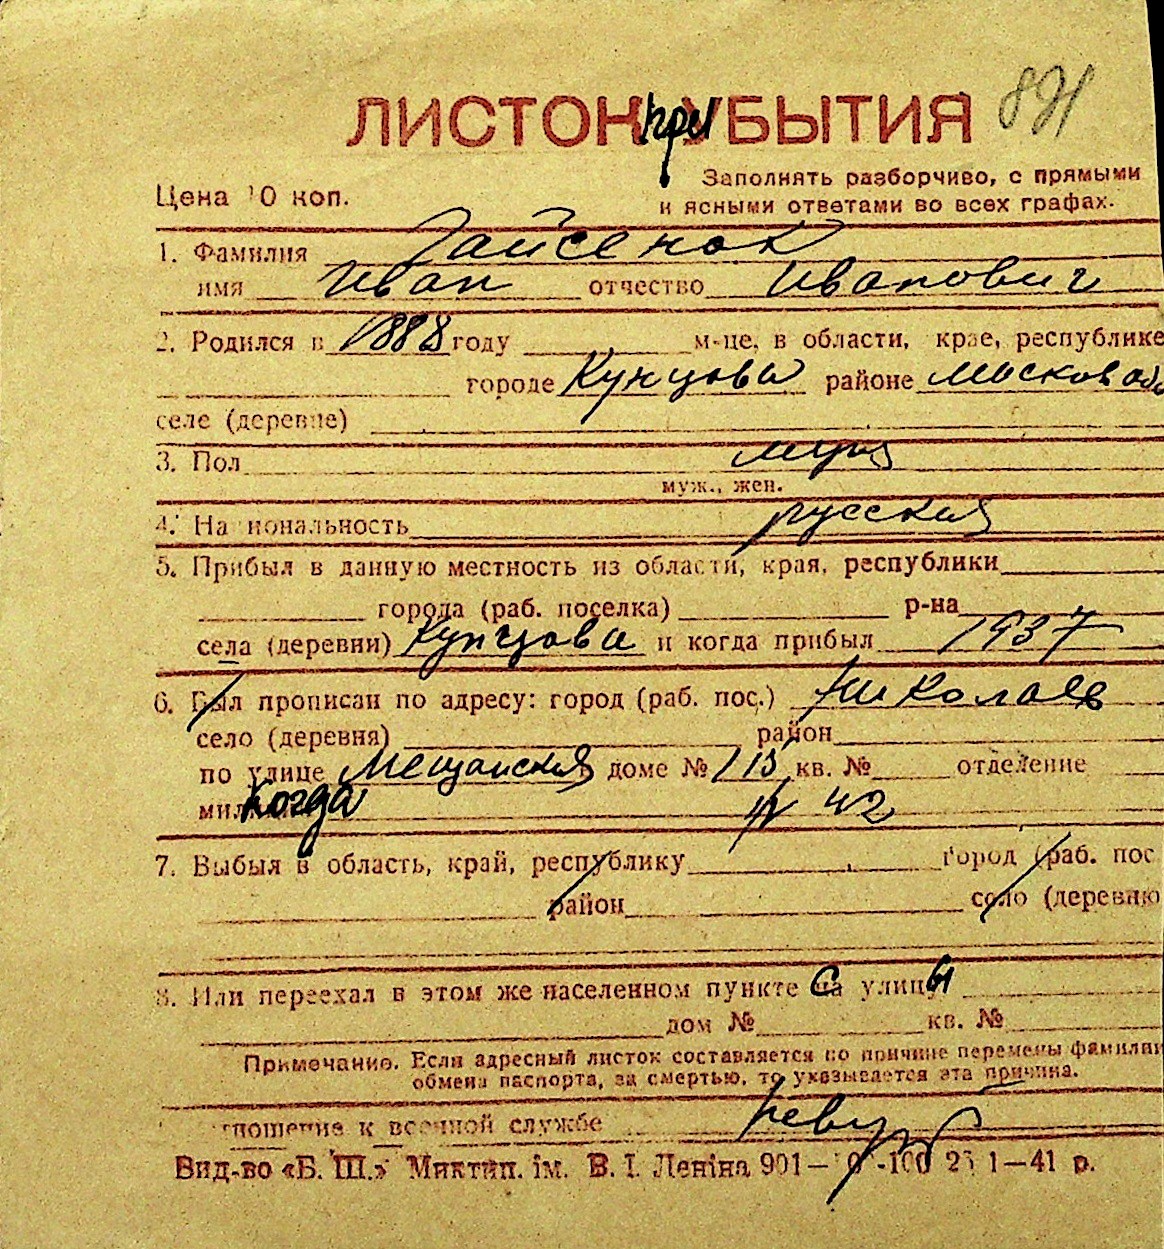 891
ЛИСТОК при УБЫТИЯ
Цена 10 коп.
Заполнять разборчиво, с прямыми
и ясными ответами во всех графах.
1. Фамилия Гайсенок
имя Иван отчество Иванович
2. Родился в 1888 году м-це, в области, крае, республике
городе Кунцова районе Московс обл
селе (деревне)
3. Пол муж
муж., жен.
4. Национальность русский
5. Прибыл в данную местность из области, края, республики
города (раб. поселка) р-на
села (деревни) Кунцова и когда прибыл 1937
6. Был прописан по адресу: город (раб. пос.) Николаев
село (деревня) район
по улице Мещанская доме № 115 кв. № отделение
мил когда 42
7. Выбыл в область, край, республику город (раб. пос
район село (деревню
8. Или переехал в этом же населенном пункте са улицы
дом № кв. №
Примечание. Если адресный листок составляется по причине перемены фамилии
обмена паспорта, за смертью, то указывается эта причина.
тношение к военной службе
Вид-во «Б. Ш.» Миктип. ім. В. І. Леніна 901—10 -100 23 1—41 р.